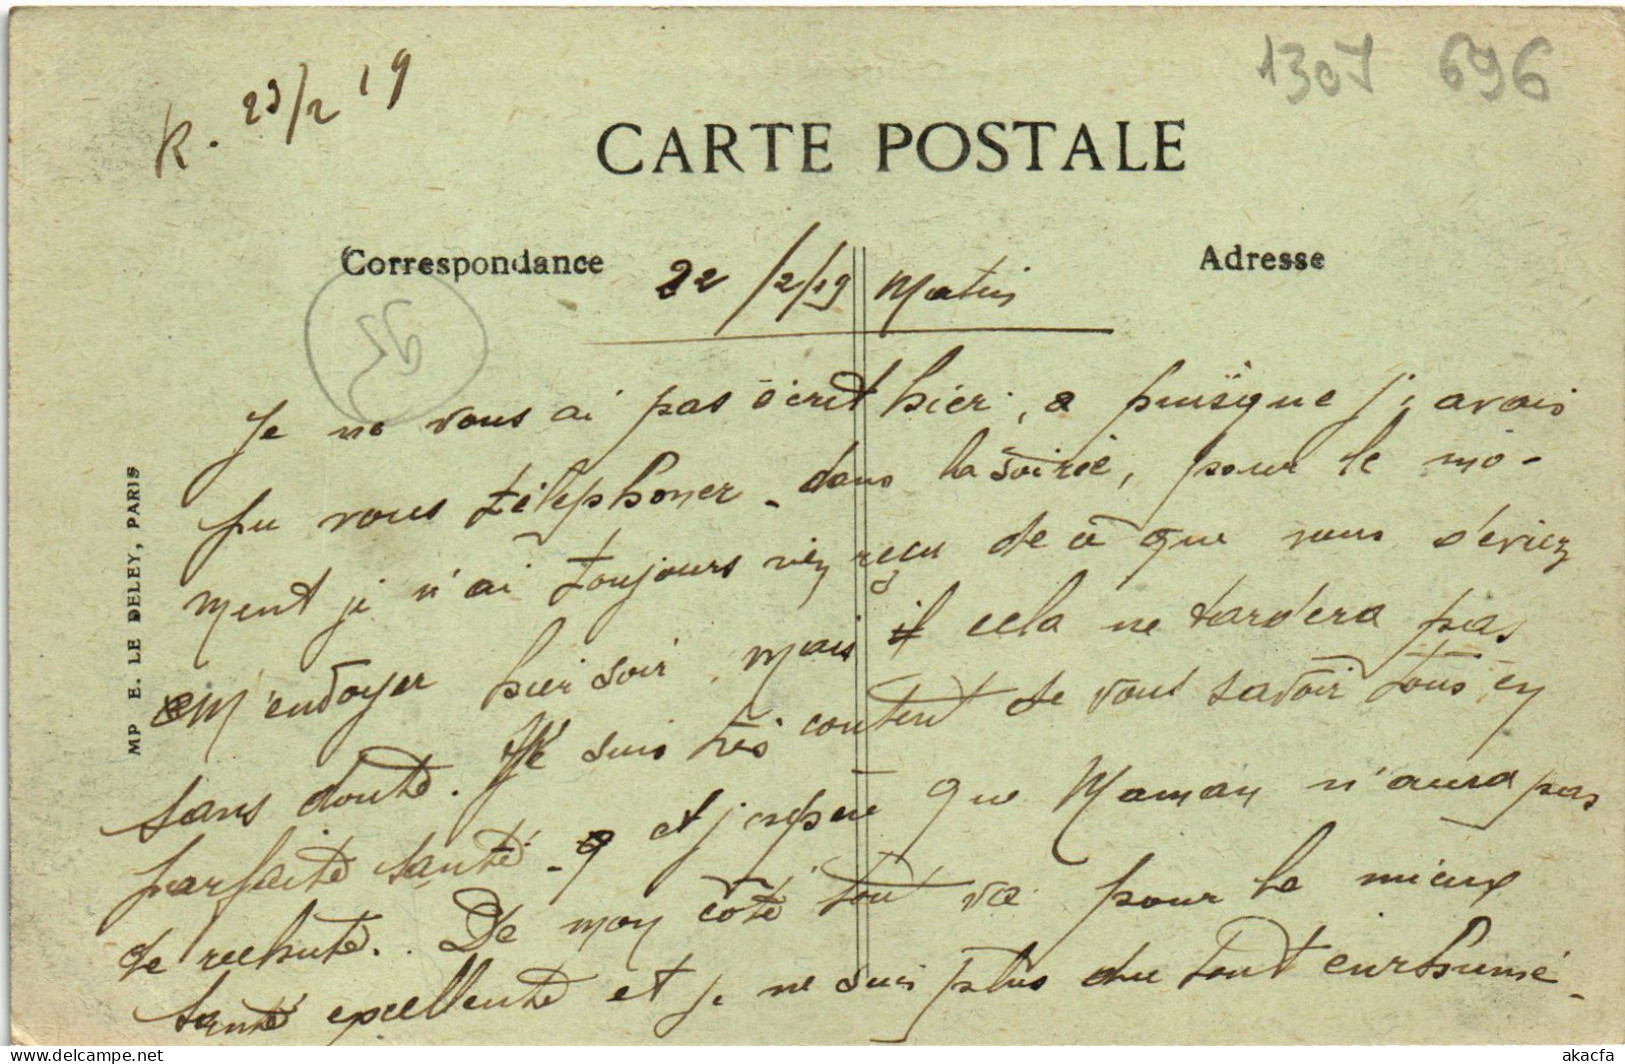 R. 23/2 19
1307 696
CARTE POSTALE
Correspondance
Adresse
22/2/19 Matin
95
Je ne vous ai pas écrit hier, puisque j'avais
pu vous téléphoner dans la soirée, pour le mo-
ment je n'ai toujours rien reçu de ce que vous deviez
m'envoyer hier soir, mais cela ne tardera pas
sans doute. Je suis très content de vous savoir tous en
parfaite santé - et j'espère que Maman n'aura pas
de rechute.. De mon côté tout va pour le mieux
santé excellente et je ne suis plus du tout enrhumé.
MP E. LE DELEY, PARIS
akacfa